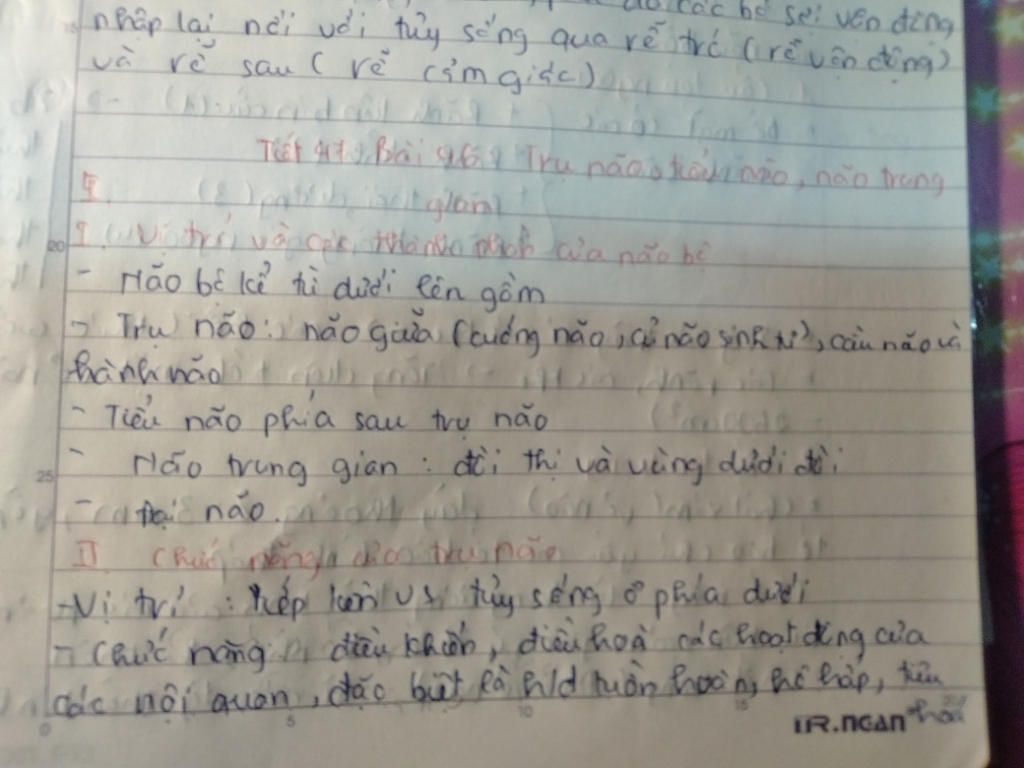 các bó sợi vận động
nhập lại nối với tủy sống qua rễ trc (rễ vận động)
và rễ sau ( rễ cảm giác)
Tiết 47: Bài 46: Trụ não, tiểu não, não trung
gian
I. Vị trí và các thành phần của não bộ
- Não bộ kể từ dưới lên gồm
- Trụ não: não giữa (cuống não, củ não sinh tư), cầu não và
hành não
- Tiểu não phía sau trụ não
- Não trung gian : đồi thị và vùng dưới đồi
- Đại não.
II Chức năng của trụ não
- Vị trí : tiếp liền vs tủy sống ở phía dưới
- Chức năng : điều khiển, điều hoà các hoạt động của
các nội quan, đặc biệt là h/đ tuần hoàn, hô hấp, tiêu
hoá
20
25
0 5 10 15
MR.NGAN